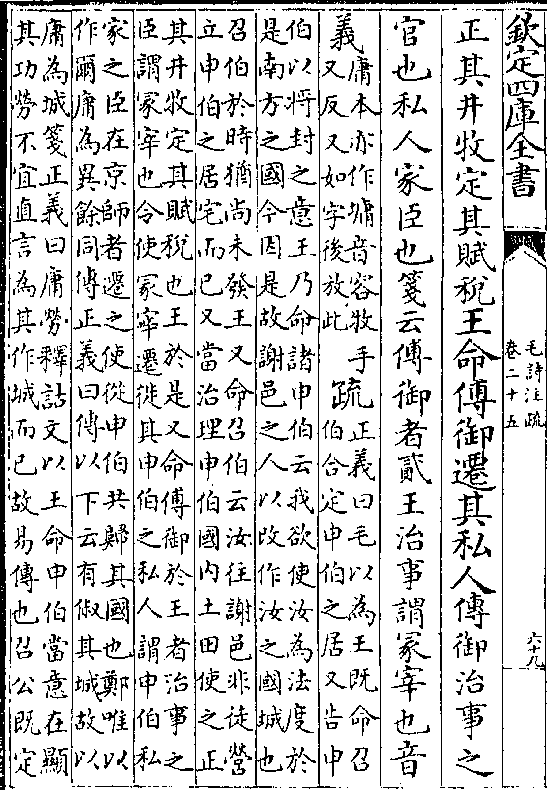 欽定四庫全書
毛詩注疏
卷二十五
六十九
正其井牧定其賦稅王命傅御遷其私人傅御治事之
官也私人家臣也箋云傅御者貳王治事謂冢宰也音
義
庸本亦作墉音容牧手
又反又如字後放此
疏
正義曰毛以為王既命召
伯合定申伯之居又告申
伯以將封之意王乃命諸申伯云我欲使汝為法度於
是南方之國今因是故謝邑之人以改作汝之國城也
召伯於時猶尚未發王又命召伯云汝往謝邑非徒營
立申伯之居宅而已又當治理申伯國內土田使之正
其井牧定其賦稅也王於是又命傅御於王者治事之
臣謂冢宰也令使冢宰遷徙其申伯之私人謂申伯私
家之臣在京師者遷之使從申伯共歸其國也鄭唯以
作爾庸為異餘同傳正義曰傳以下云有俶其城故以
庸為城箋正義曰庸勞釋詁文以王命申伯當意在顯
其功勞不宜直言為其作城而已故易傳也召公既定